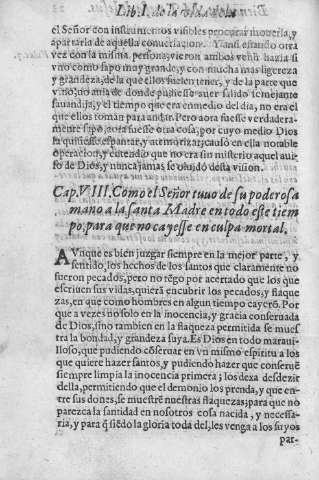 Lib. I. de la vida de la
el Señor con instrumentos visibles procurar mouerla, y
apartarla de aquella conuersacion. Y ansi estando otra
vez con la misma persona, vieron ambos venir hazia si
vno como sapo muy grande, y con mucha mas ligereza
y grandeza, de la que ellos suelen tener, y de la parte que
vino, no auia de donde pudiesse auer salido semejante
sauandija, y el tiempo que era en medio del dia, no era el
que ellos toman para andar. Pero aora fuesse verdadera-
mente sapo, aora fuesse otra cosa, por cuyo medio Dios
la quisiesse espantar, y atemorizar; causò en ella notable
operacion, y entendio que no era sin misterio aquel auis
so de Dios, y nunca jamas se oluidò desta vision.
Cap. VIII. Como el Señor tuuo de su poderosa
mano a la santa Madre en todo este tiem
po, para que no cayesse en culpa mortal.
AVnque es bien juzgar siempre en la mejor parte, y
sentido, los hechos de los santos que claramente no
fueron pecados, pero no tẽgo por acertado que los que
escriuen sus vidas, quierã encubrir los pecados, y flaque
zas, en que como hombres en algun tiempo cayerõ. Por
que a vezes no solo en la inocencia, y gracia conseruada
de Dios, sino tambien en la flaqueza permitida se mues
tra la bondad, y grandeza suya. Es Dios en todo maraui-
lloso, que pudiendo cõseruar en vn mismo espiritu a los
que quiere hazer santos, y pudiendo hazer que conseruẽ
siempre limpia la inocencia primera; los dexa desdezir
della, permitiendo que el demonio los prenda, y que en-
tre sus dones, se muestrẽ nuestras flaquezas; para que no
parezca la santidad en nosotros cosa nacida, y necessa-
ria, y para q̃ siẽdo la gloria toda del, les venga a los suyos
par-